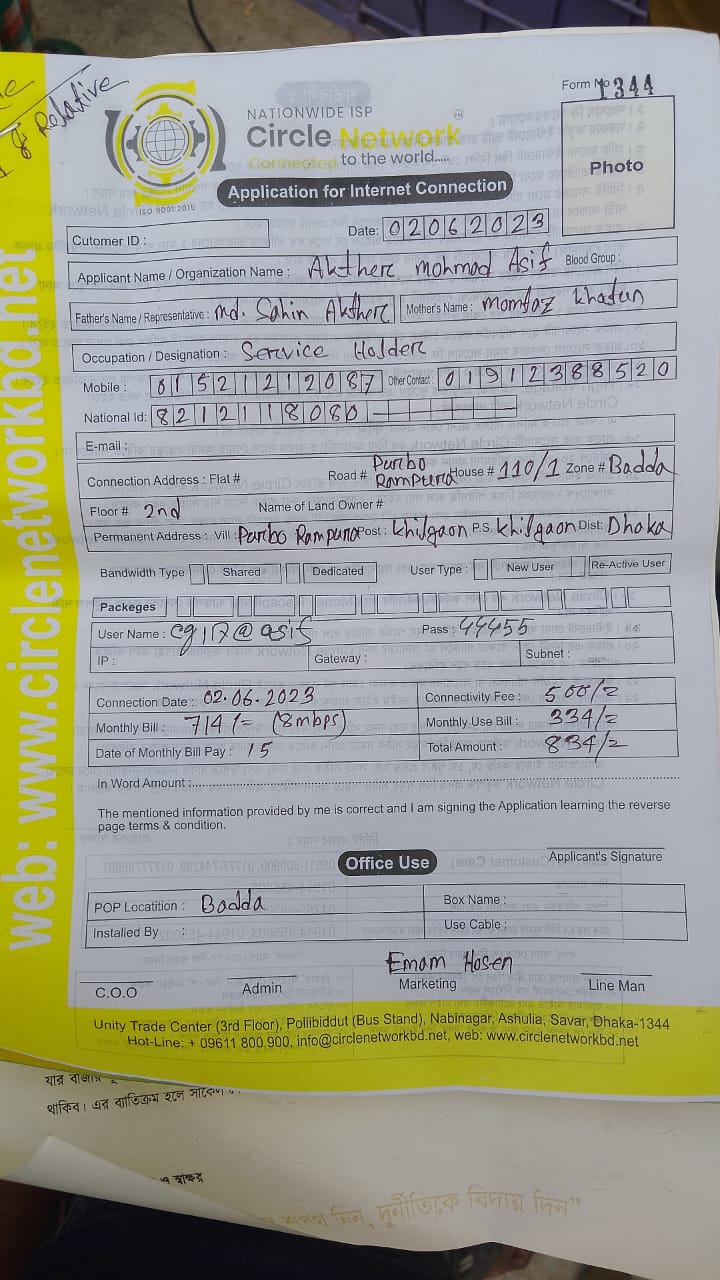 Relative
Form No 1344
NATIONWIDE ISP
Circle Network
Connected to the world.....
ISO 9001:2015
Application for Internet Connection
Photo
Cutomer ID :
Date: 02062023
Applicant Name / Organization Name : Akther Mohmad Asif Blood Group :
Father's Name / Representative : Md. Sahin Akther Mother's Name : Momtaz Khatun
Occupation / Designation : Service Holder
Mobile : 01521212087 Other Contact : 01912388520
National Id: 8212118080
E-mail :
Connection Address : Flat # Road # Purbo Rampura House # 110/1 Zone # Badda
Floor # 2nd Name of Land Owner #
Permanent Address : Vill : Purbo Rampura Post : Khilgaon P.S. Khilgaon Dist: Dhaka
Bandwidth Type Shared Dedicated User Type : New User Re-Active User
Packeges
User Name : cg17@asif Pass : 44455
IP : Gateway : Subnet :
Connection Date : 02.06.2023 Connectivity Fee : 500/=
Monthly Bill : 714/= (8mbps) Monthly Use Bill : 334/=
Date of Monthly Bill Pay : 15 Total Amount : 834/=
In Word Amount :
The mentioned information provided by me is correct and I am signing the Application learning the reverse
page terms & condition.
Applicant's Signature
Office Use
POP Locatition : Badda Box Name :
Installed By : Use Cable :
Emam Hosen
C.O.O Admin Marketing Line Man
Unity Trade Center (3rd Floor), Pollibiddut (Bus Stand), Nabinagar, Ashulia, Savar, Dhaka-1344
Hot-Line: + 09611 800 900, info@circlenetworkbd.net, web: www.circlenetworkbd.net
web: www.circlenetworkbd.net
যার বাজার
থাকিব। এর ব্যতিক্রম হলে
স্বাক্ষর
শপথ নিন, দুর্নীতিকে বিদায় দিন”